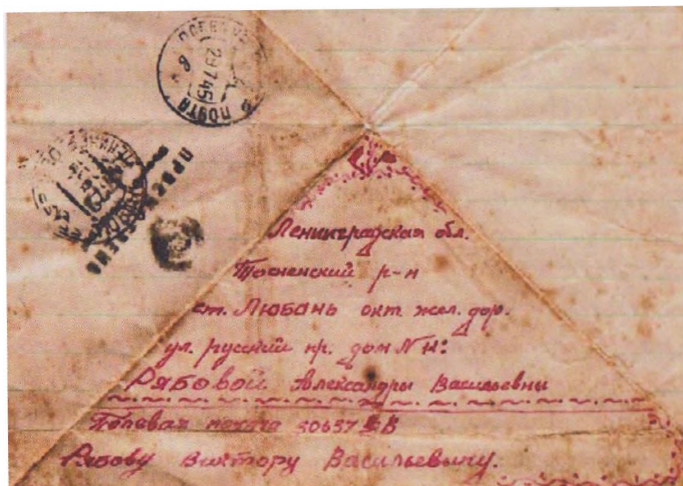 29745
ПОЧТА
ПРОСМОТРЕНО
Ленинградская обл.
Тосненский р-н
ст. Любань окт. жел. дор.
ул. русский пр. дом № н:
Рябовой Александры Васильевны
Полевая почта 50657
Рябову Виктору Васильевичу.